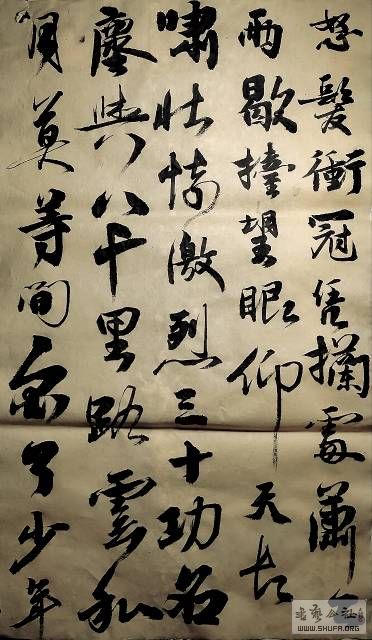 怒髮衝冠凭攔處瀟々
雨歇擡望眼仰天長
嘯壮懷激烈三十功名
塵與八千里路雲和
月莫等閒白了少年
WWW.SHUFA.ORG